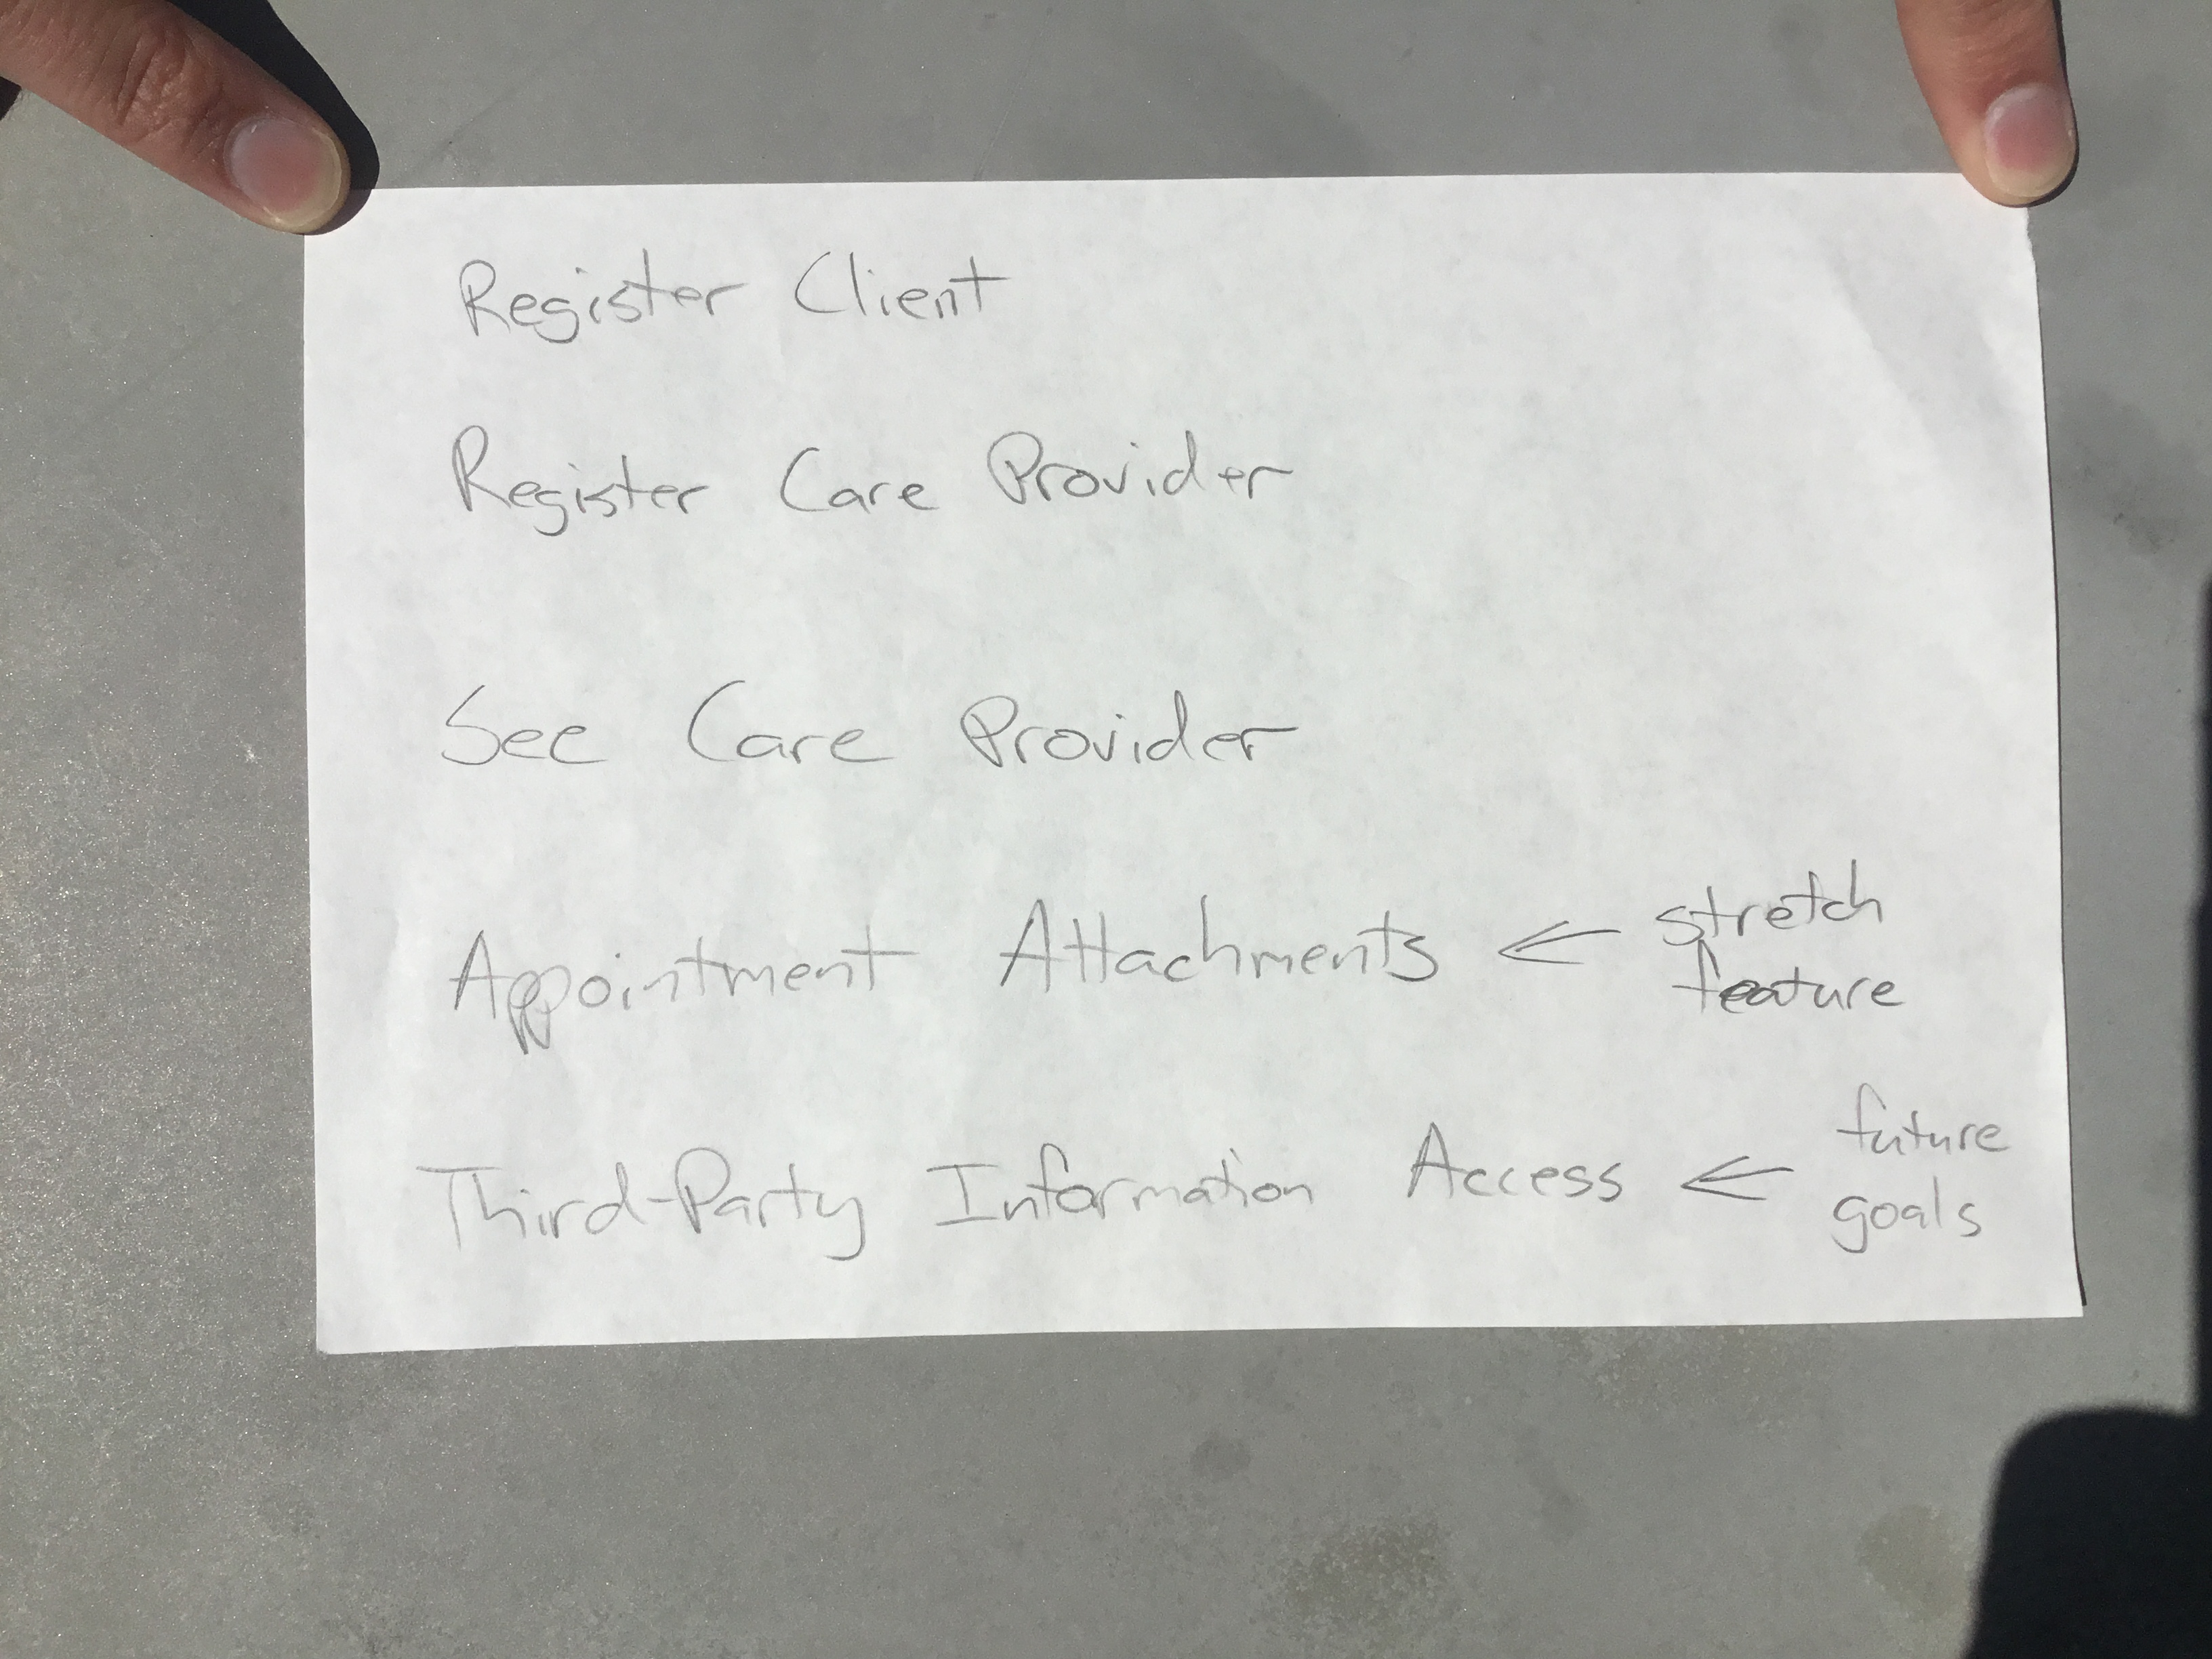 Register Client
Register Care Provider
See Care Provider
Appointment Attachments ← stretch
feature
Third-Party Information Access ← future
goals